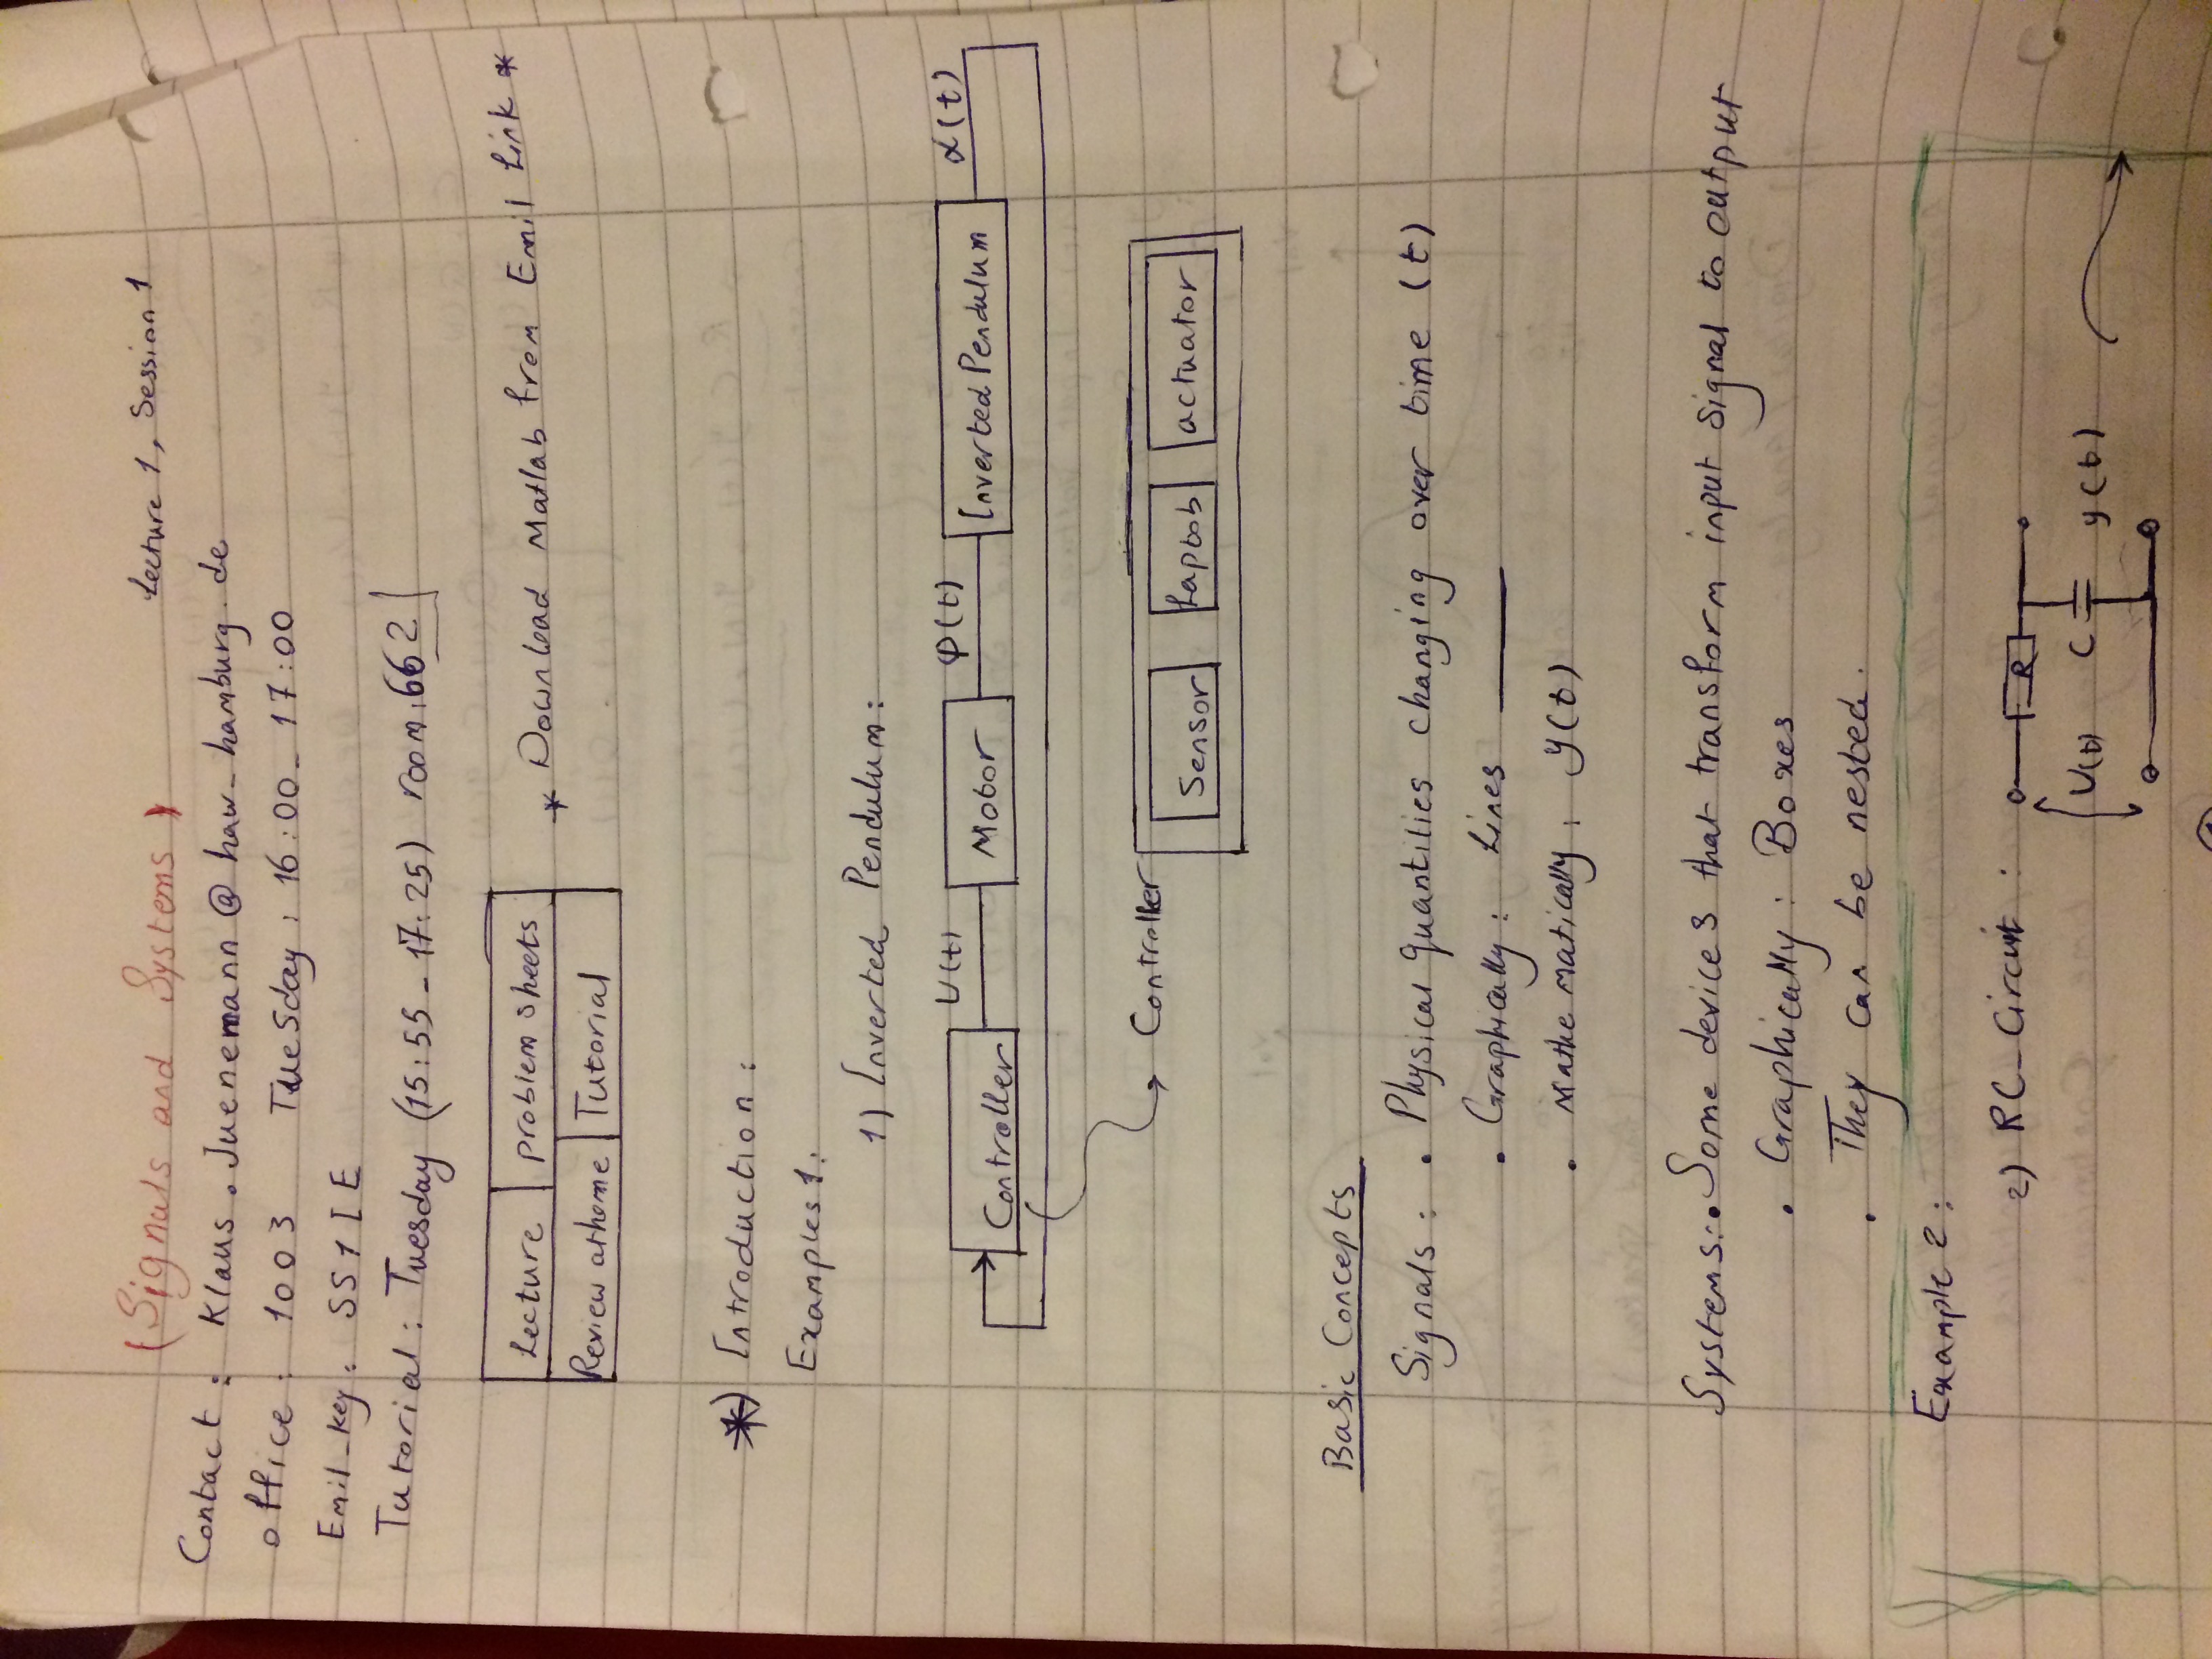 (Signals and Systems)
Lecture 1, Session 1
Contact: Klaus.Juenemann@haw-hamburg.de
office: 1003 Tuesday: 16:00-17:00
Emil-key: SS1IE
Tutorial: Tuesday (15:55-17:25) room:662
Lecture problem sheets
Review at home Tutorial
* Download Matlab from Emil Link *
*) Introduction:
Examples 1:
1) Inverted Pendulum:
U(t) φ(t) α(t)
Controller Motor Inverted Pendulum
Controller
Sensor Laptob actuator
Basic Concepts
Signals: • Physical quantities changing over time (t)
• Graphically: Lines
• Mathematically: y(t)
Systems: • Some devices that transform input signal to output
• Graphically: Boxes
• They can be nested.
Example 2:
2) RC-Circuit:
R
U(t) C y(t)
1